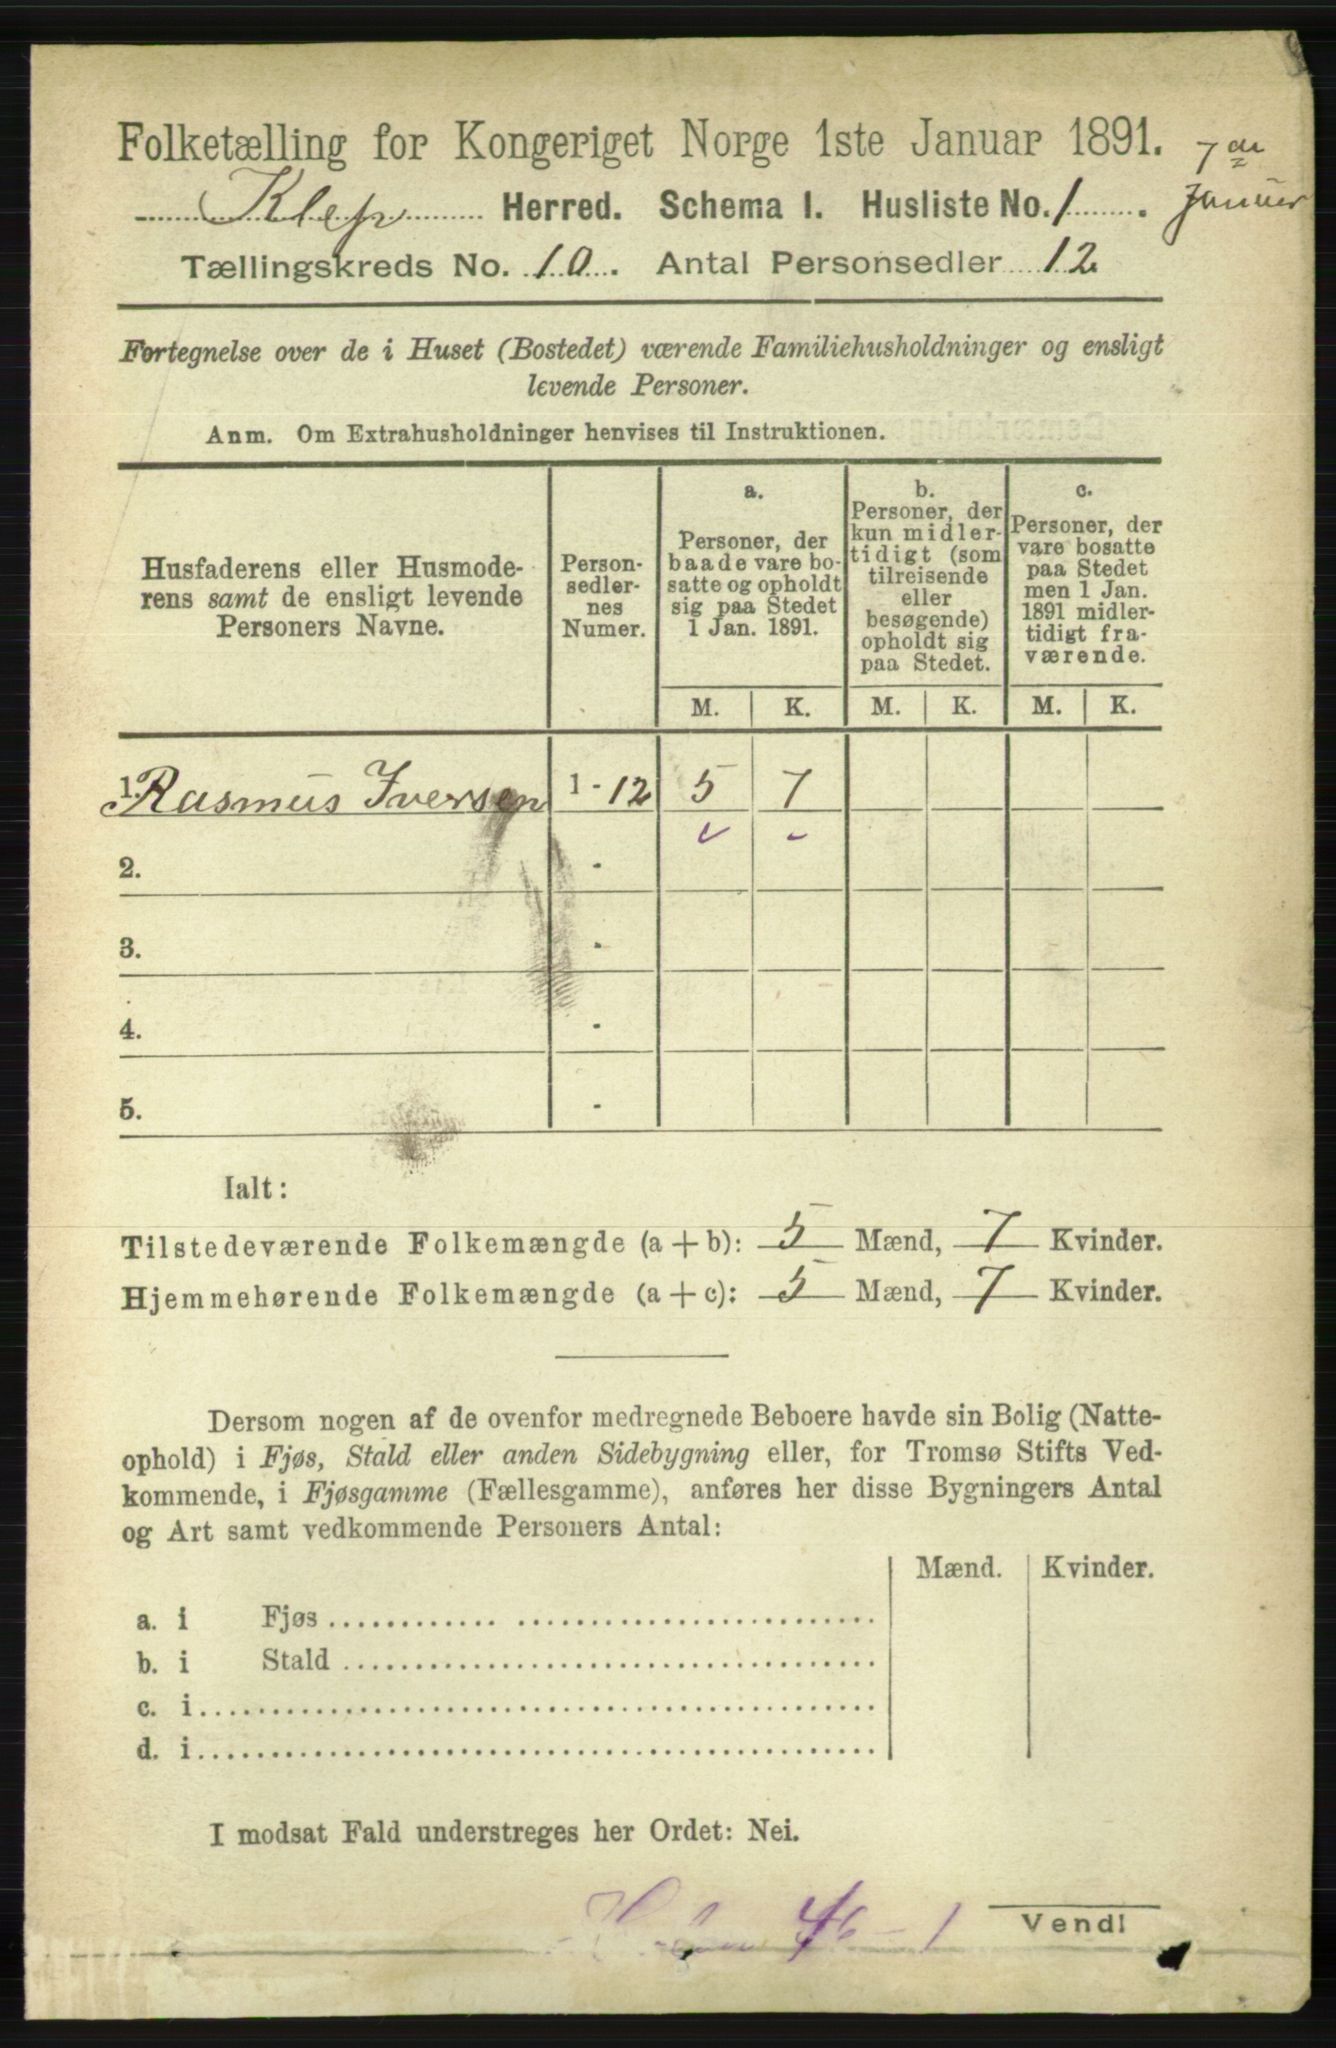 Folketælling for Kongeriget Norge 1ste Januar 1891.
7de
Januar
Klep Herred. Schema I. Husliste No. 1.
Tællingskreds No. 10. Antal Personsedler 12.
Fortegnelse over de i Huset (Bostedet) værende Familiehusholdninger og ensligt
levende Personer.
Anm. Om Extrahusholdninger henvises til Instruktionen.
Husfaderens eller Husmode-
rens samt de ensligt levende
Personers Navne.
Person-
sedler-
nes
Numer.
a.
Personer, der
baade vare bo-
satte og opholdt
sig paa Stedet
1 Jan. 1891.
b.
Personer, der
kun midler-
tidigt (som
tilreisende
eller
besøgende)
opholdt sig
paa Stedet.
c.
Personer, der
vare bosatte
paa Stedet
men 1 Jan.
1891 midler-
tidigt fra-
værende.
M. K. M. K. M. K.
1. Rasmus Iversen 1 - 12 5 7
2. -
3. -
4. -
5. -
Ialt:
Tilstedeværende Folkemængde (a + b): 5 Mænd, 7 Kvinder.
Hjemmehørende Folkemængde (a + c): 5 Mænd, 7 Kvinder.
Dersom nogen af de ovenfor medregnede Beboere havde sin Bolig (Natte-
ophold) i Fjøs, Stald eller anden Sidebygning eller, for Tromsø Stifts Ved-
kommende, i Fjøsgamme (Fællesgamme), anføres her disse Bygningers Antal
og Art samt vedkommende Personers Antal:
Mænd. Kvinder.
a. i Fjøs
b. i Stald
c. i
d. i
I modsat Fald understreges her Ordet: Nei.
46 - 1
Vend!